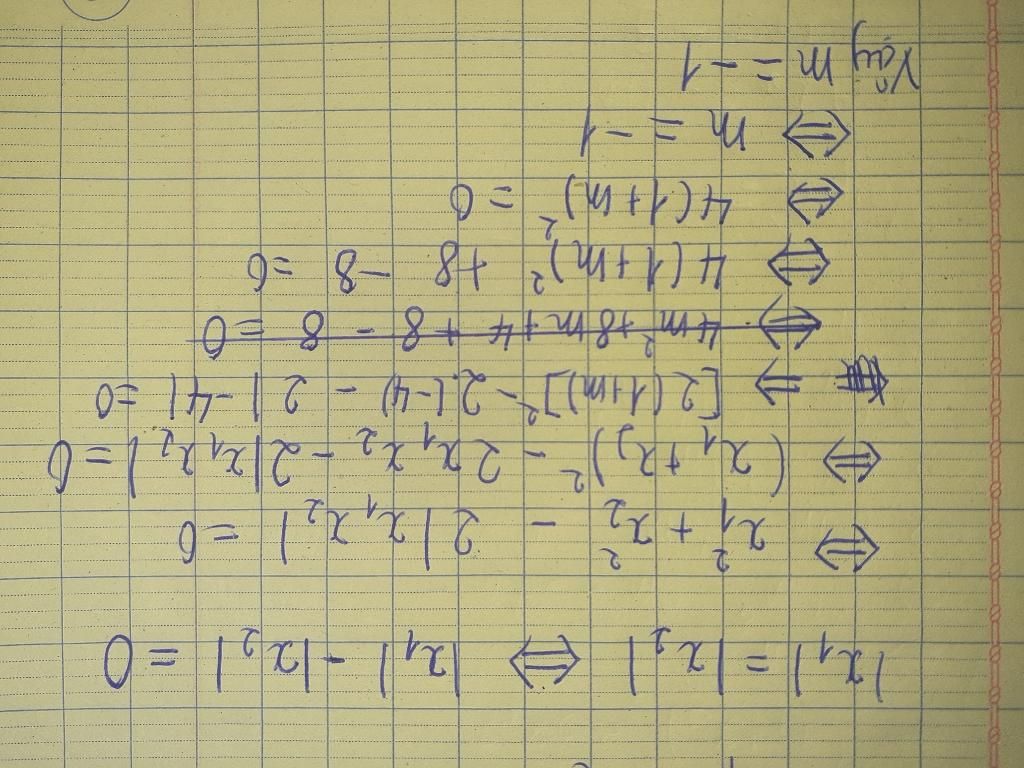 |x₁| = |x₂| ⇔ |x₁| - |x₂| = 0
⇔ x₁² + x₂² - 2|x₁x₂| = 0
⇔ (x₁ + x₂)² - 2x₁x₂ - 2|x₁x₂| = 0
⇔ [2(1+m)]² - 2.(-4) - 2|-4| = 0
⇔ 4m² + 8m + 4 + 8 - 8 = 0
⇔ 4(1+m)² + 8 - 8 = 0
⇔ 4(1+m)² = 0
⇔ m = -1
Vậy m = -1